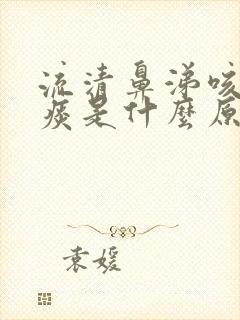 流清鼻涕咳
痰是什麼原
袁媛